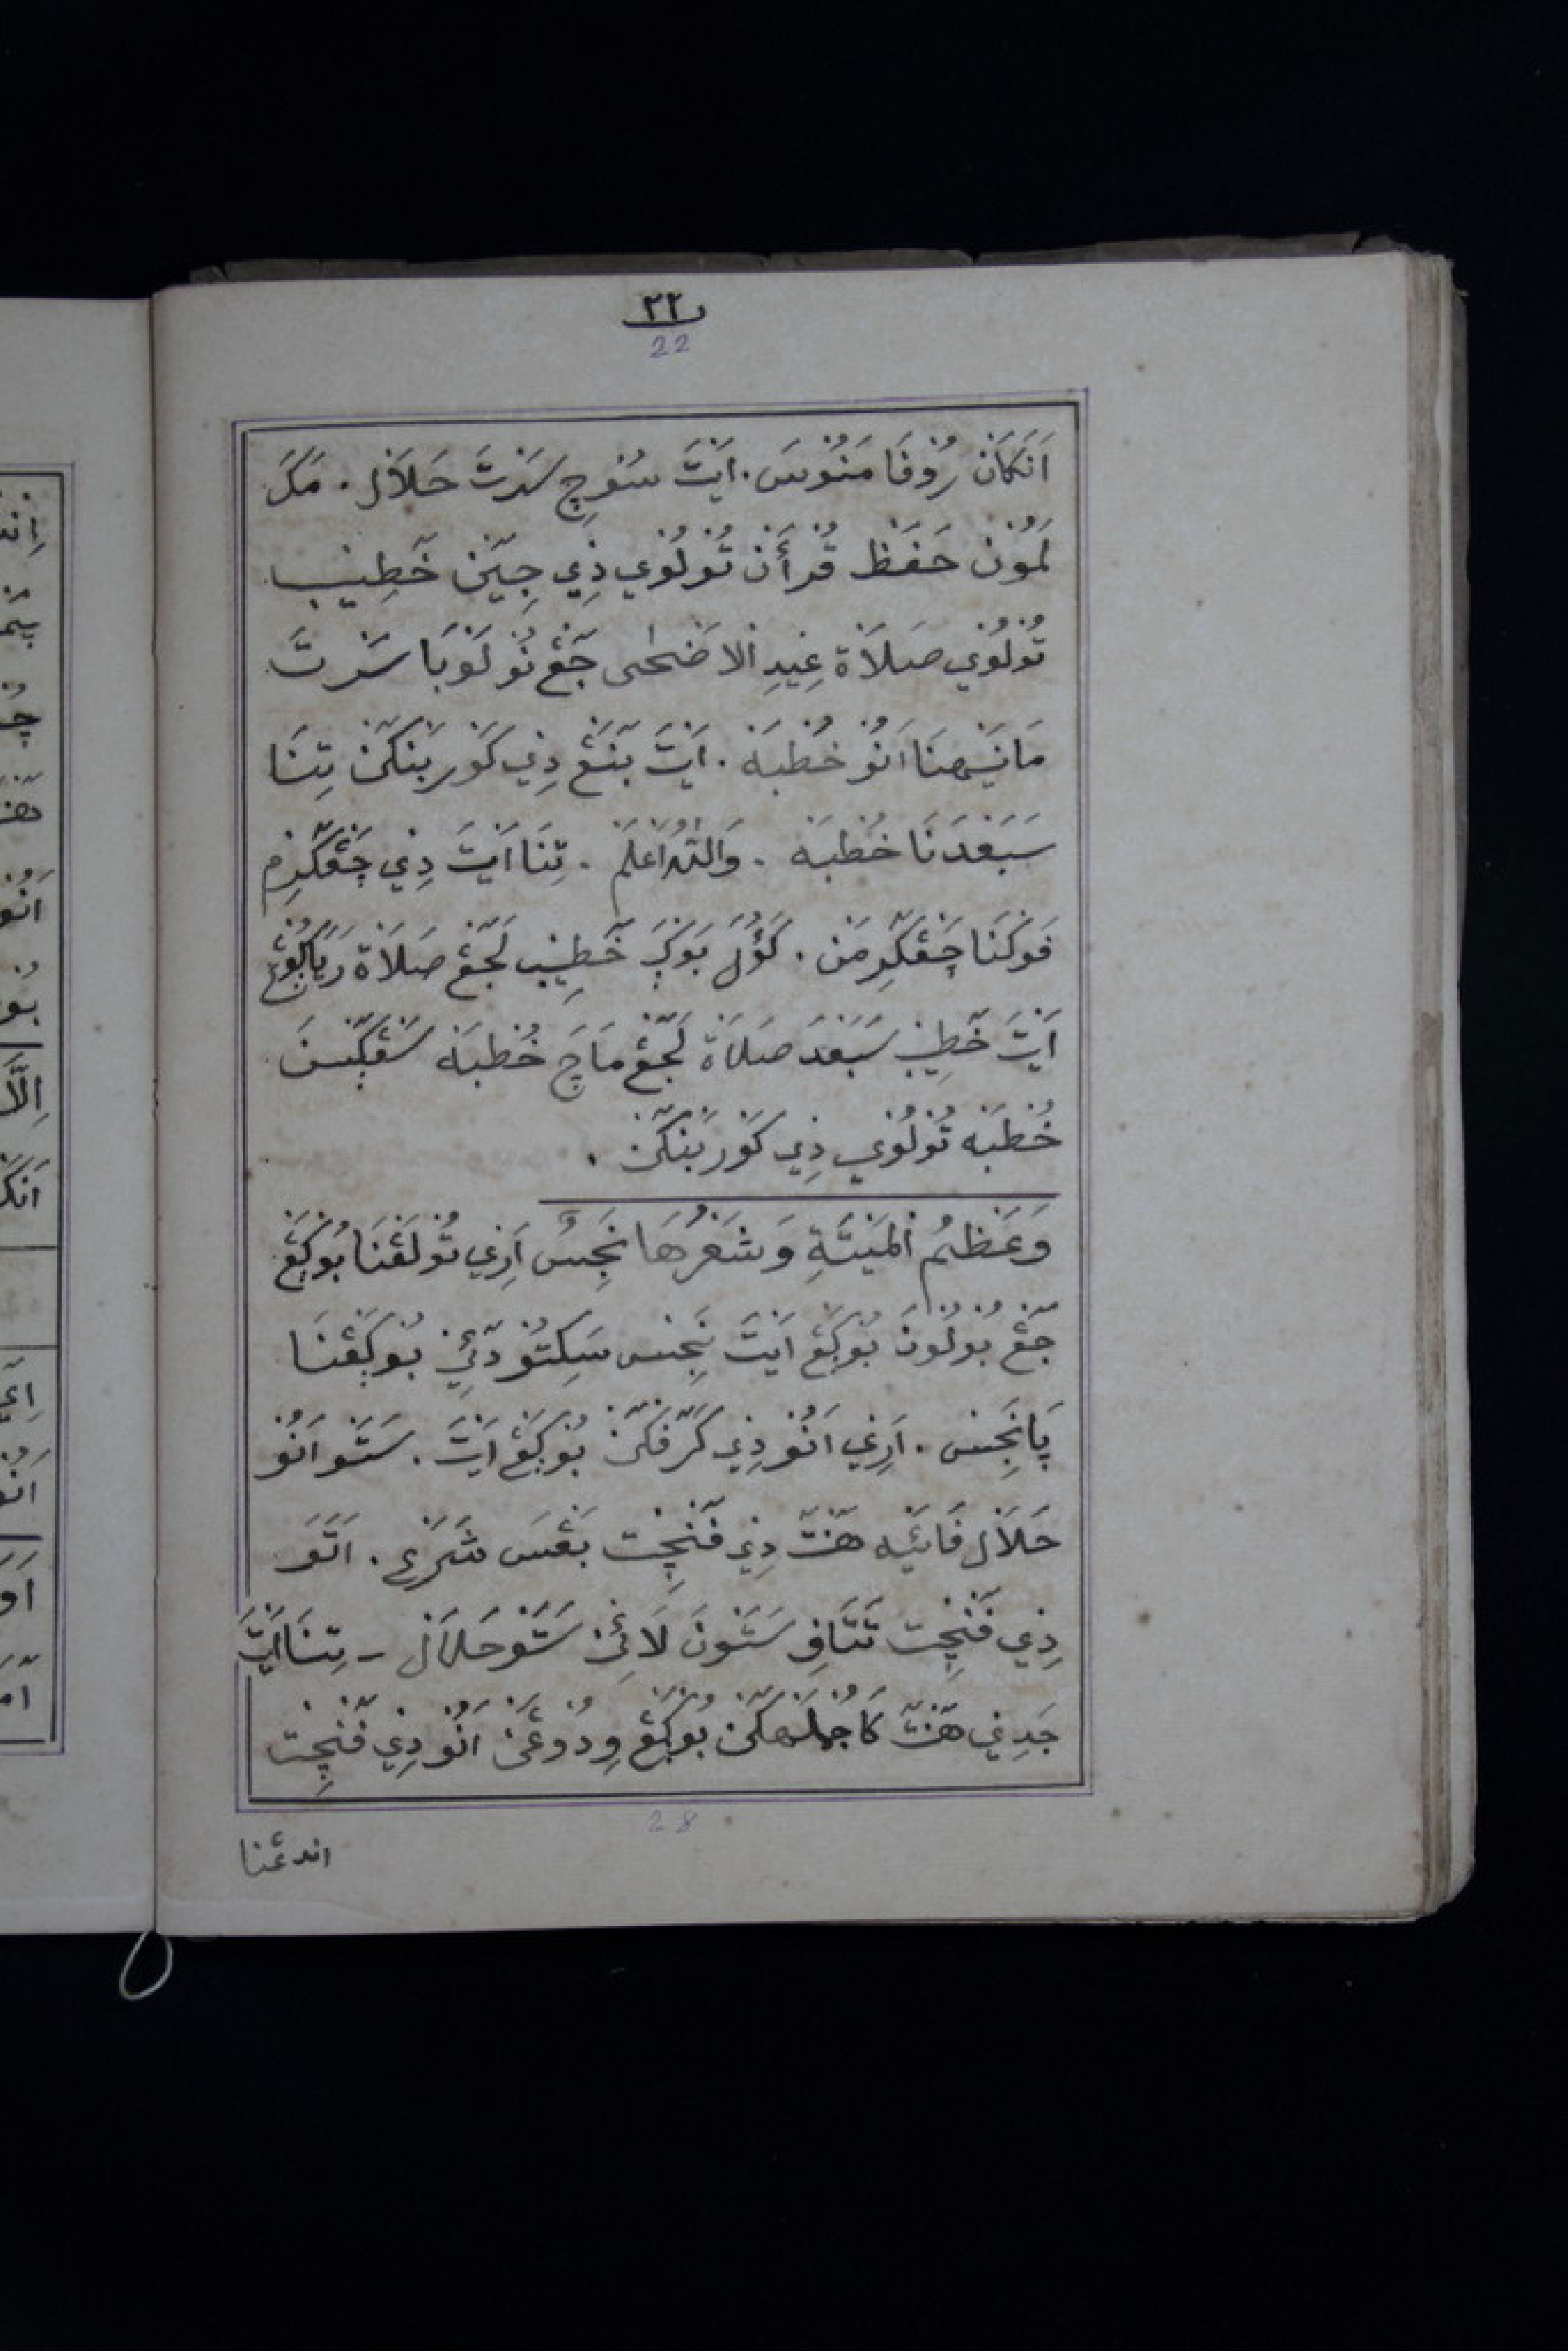 ٢٢
22
اَنَكَانْ رُوْفَا مَنُوْسَ. اَيْتَ سُوْچِ سَرْتَ حَلاَلْ. مَكَ
لَمُوْنْ حَفَظْ قُرْأَنْ تُوْلُوْيْ دِيْ جِيَيْنْ خَطِيْب
تُوْلُوْيْ صَلاَةْ عِيْدِ اْلاَضْحٰى جَڠْ نُوْلَوْبَا سَرْتَ
مَانَيْهنَا اَنُوْ خُطْبَهْ. اَيْتَ بَنَڠْ دِيْ كَوْرْبَنْكَنْ تِنَا
سَبَعْدَنَا خُطْبَهْ. وَاللهُ اَعْلَمْ. تِنَا اَيْتَ دِيْ چَڠْكَرِمْ
فَوْكَنَا چَڠْكَرِمَنْ. كَؤُلَ بَوْكَيْ خَطِيْب لَجَڠْ صَلاَةْ رَيَاكَبُوْڠْ
اَيْتَ خَطِيْب سَبَعْدَ صَلاَةْ لَجَڠْ مَاچَ خُطْبَهْ سَڠْكَيْسَنْ
خُطْبَهْ تُوْلُوْيْ دِيْ كَوْرْبَنْكَنْ.
وَعَظْمُ اْلمَيْتَةِ وَشَعْرُهَا نَجِسٌ اَرْتِيْ تُوْلَڠْنَا بُوْكَڠْ
جَڠْ بُوْلُوْنَ بُوْكَڠْ اَيْتَ نَجِسْ سَكِتُوْ دَئِيْ بُوْكَڠْنَا
يَا نَجِسْ. اَرْتِيْ اَنُوْ دِيْ كَرَفْكَنْ بُوْكَڠْ اَيْتَ. سَتَوْ اَنُوْ
حَلاَلْ فَائَيْهْ هَنْتَ دِيْ فَنْچِتْ بَڠْسَ شَرَعْ. اَتَوَ
دِيْ فَنْچِتْ تَتَافِ سَتَوْنَ لَائِنْ سَتَوْ حَلاَلْ - تِنَا اَيْتَ
جَدِيْ هَنْتَ كَاجُمْلَهكَنْ بُوْكَڠْ وِدُوْعَنْ اَنُوْ دِيْ فَنْچِتْ
28
اندعنا